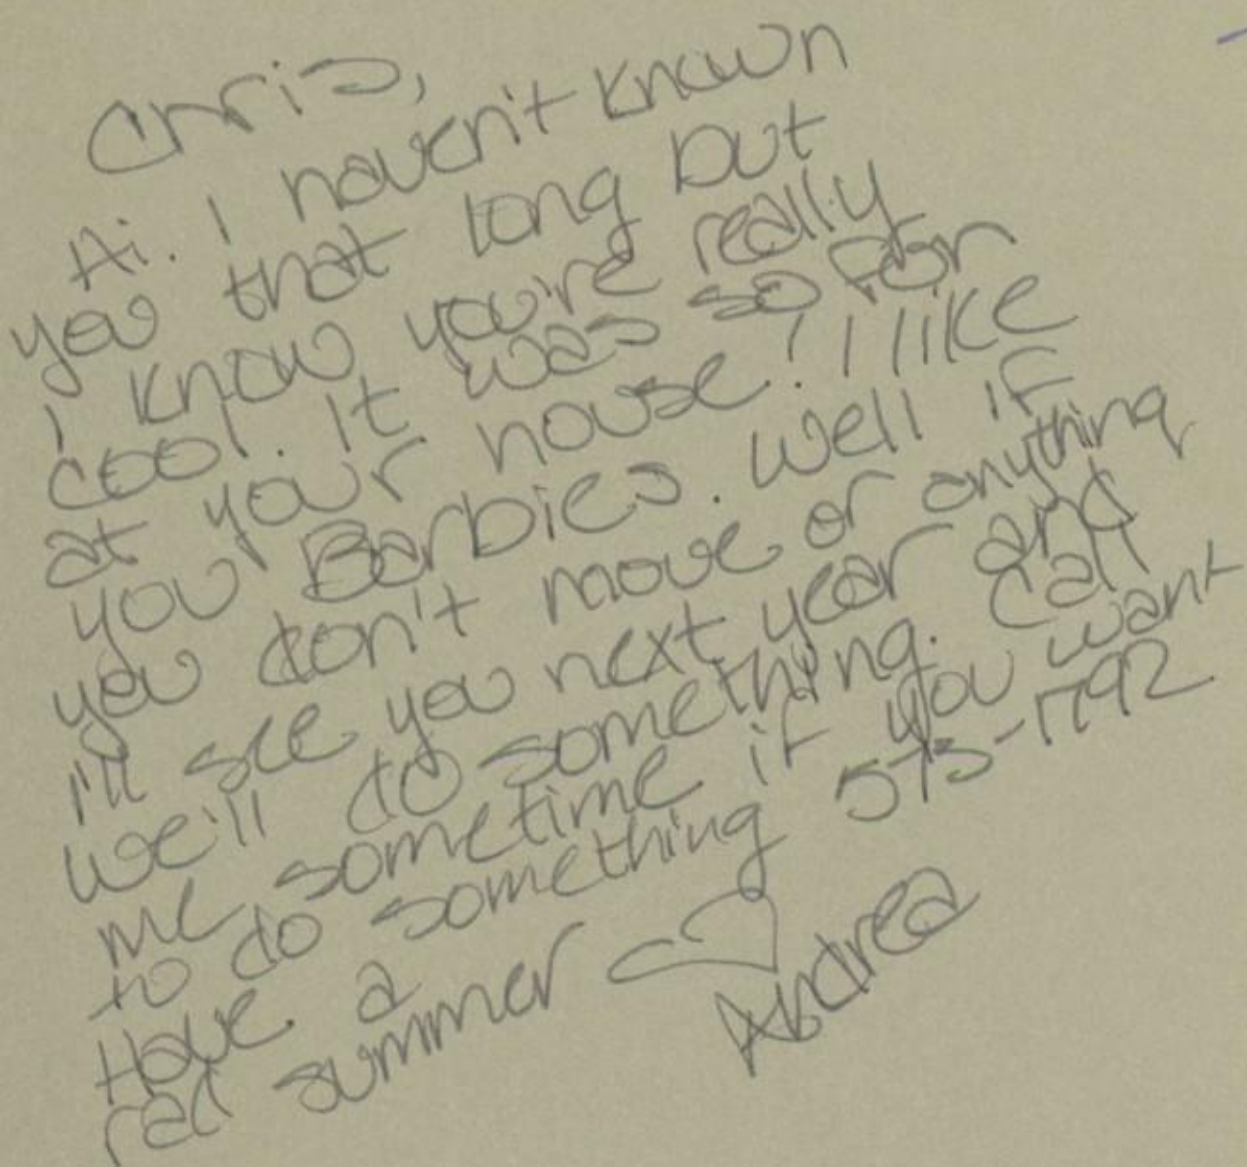 Chris,
Hi. I haven't known
you that long but
I know you're really
cool. It was so for
at your house! I like
you Barbies. Well if
you don't move or anything
I'll see you next year and
we'll do something. Call
me sometime if you want
to do something 573-1792
Have a
rad summer ♡
Andrea